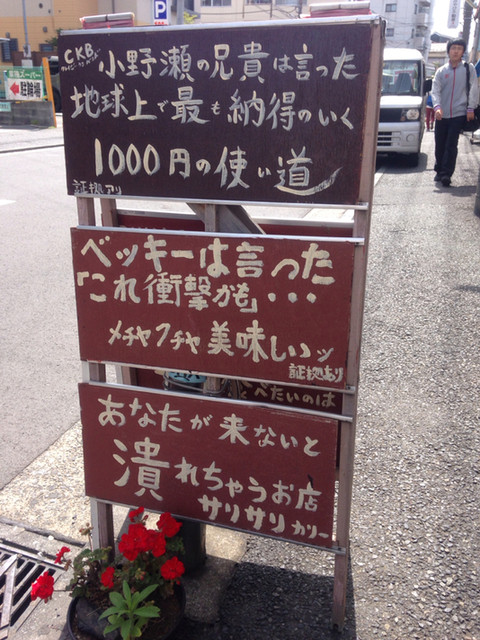 CKB
小野瀬の兄貴は言った
地球上で最も納得のいく
1000円の使い道
証拠アリ
ベッキーは言った
「これ衝撃かも」・・・
メチャクチャ美味しいッ
証拠あり
べたいのは
あなたが来ないと
潰れちゃうお店
サリサリカリー
P
駐輪場